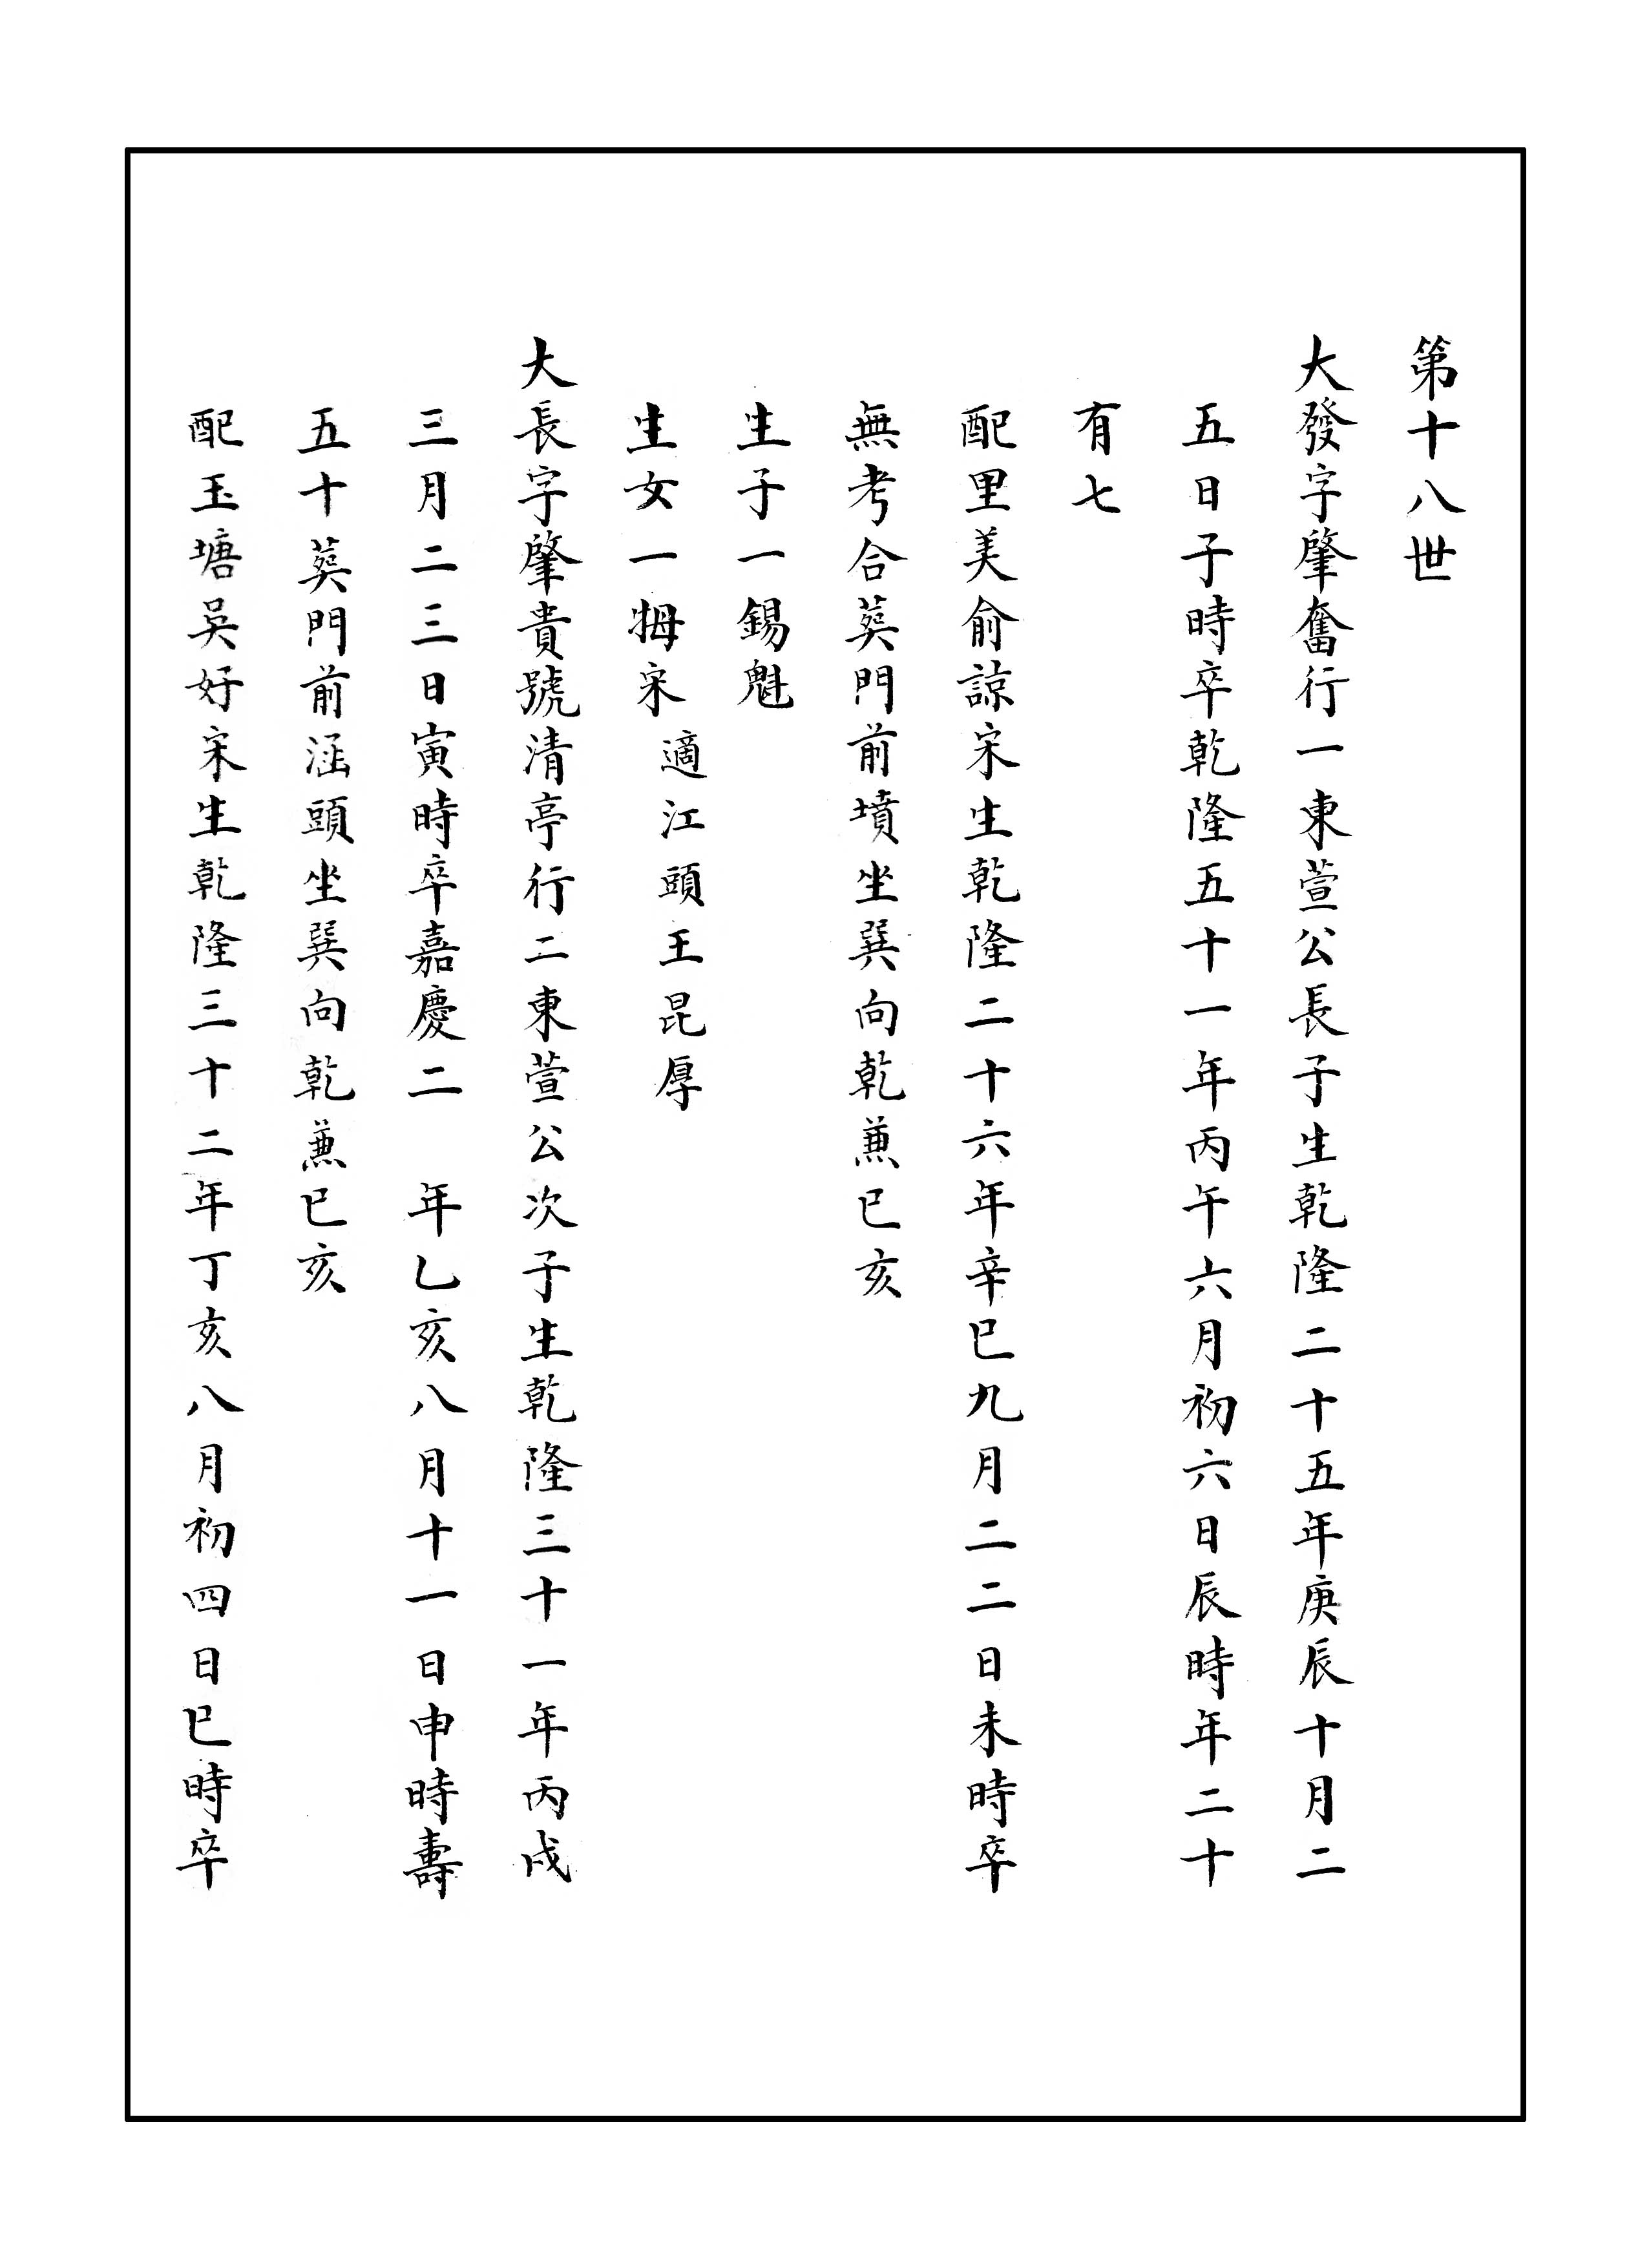 第十八世
大發字肇奮行一東萱公長子生乾隆二十五年庚辰十月二
五日子時卒乾隆五十一年丙午六月初六日辰時年二十
有七
配里美俞諒宋生乾隆二十六年辛巳九月二二日未時卒
無考合葬門前墳坐巽向乾兼巳亥
生子一錫魁
生女一姆宋適江頭王昆厚
大長字肇貴號清亭行二東萱公次子生乾隆三十一年丙戌
三月二三日寅時卒嘉慶二 年乙亥八月十一日申時壽
五十葬門前涵頭坐巽向乾兼巳亥
配玉塘吳好宋生乾隆三十二年丁亥八月初四日巳時卒